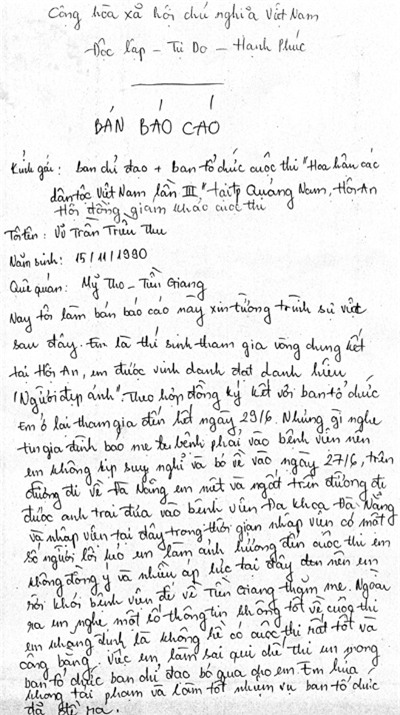 Cộng hòa xã hội chủ nghĩa Việt Nam
Độc lập - Tự Do - Hạnh Phúc
BẢN BÁO CÁO
Kính gửi: ban chỉ đạo + ban tổ chức cuộc thi "Hoa hậu các
dân tộc Việt Nam lần III" tại tp Quảng Nam, Hội An
Hội đồng giám khảo cuộc thi
Tôi tên: Võ Trần Triều Thu
Năm sinh: 15/11/1990
Quê quán: Mỹ Tho - Tiền Giang
Nay tôi làm bán báo cáo này xin tường trình sự việt
sau đây. Em là thí sinh tham gia vòng chung kết
tại Hội An, em được vinh danh đạt danh hiệu
"Người đẹp ảnh". Theo hợp đồng ký kết với ban tổ chức
Em ở lại tham gia đến hết ngày 29/6. Nhưng gì nghe
tin gia đình báo mẹ bệnh phải vào bệnh viện nên
em không kịp suy nghỉ và bỏ về vào ngày 27/6, trên
đường đi về Đà Nẵng em mệt và ngất trên đường đi
được anh trai đưa vào bệnh viện Đa khoa Đà Nẵng
và nhập viện tại đây trong thời gian nhập viện có một
số người lôi kéo em làm ảnh hưởng đến cuộc thi em
không đồng ý và nhiều áp lực tại đây nên em
rời khỏi bệnh viện để về Tiền Giang thăm mẹ. Ngoài
ra em nghe một số thông tin không tốt về cuộc thi
em khẳng định là không hề có cuộc thi rất tốt và
công bằng. Việc em làm sai qui chế thi em mong
ban tổ chức ban chỉ đạo bỏ qua cho em. Em hứa
không tái phạm và làm tốt nhiệm vụ ban tổ chức
đã đề ra.